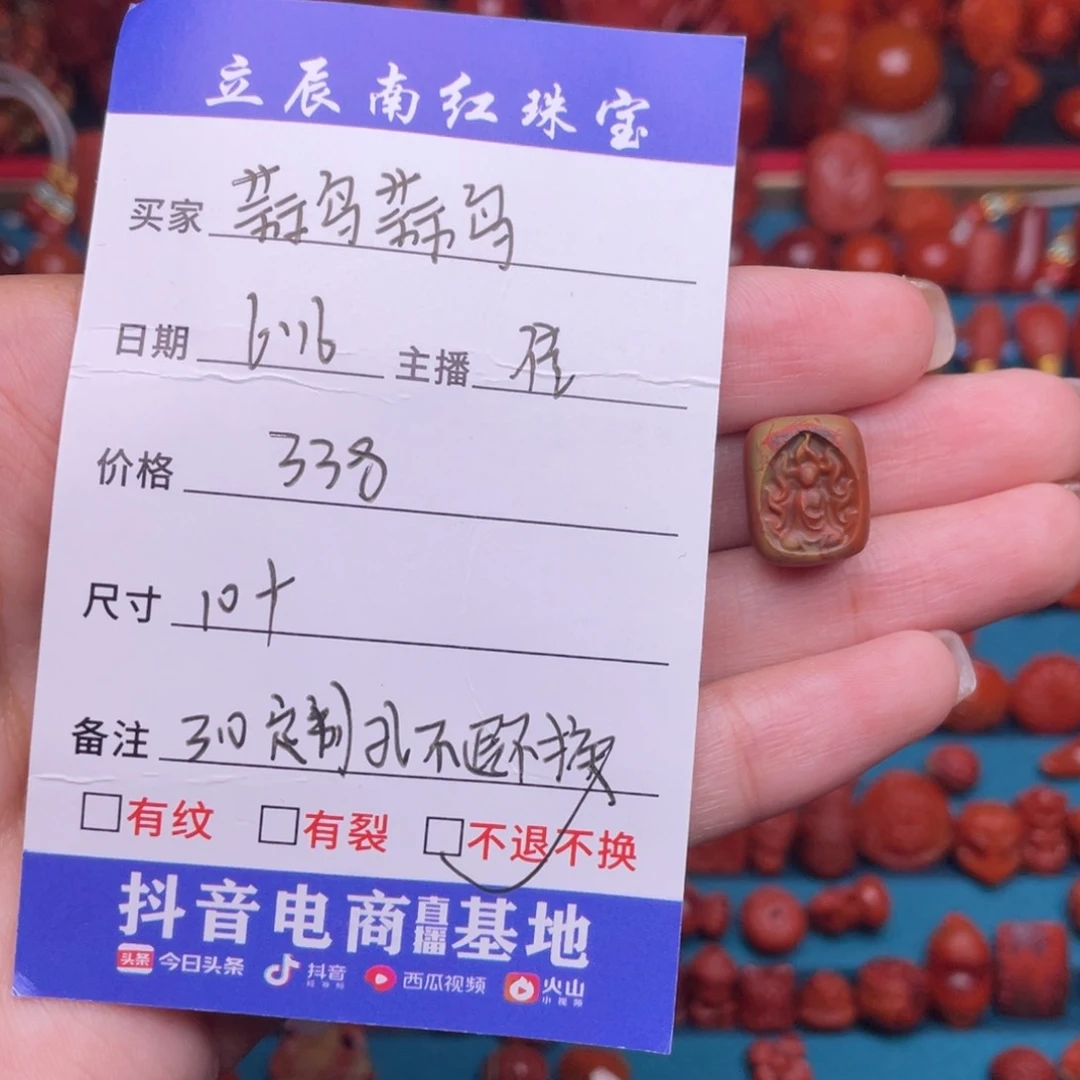 立辰南红珠宝
买家 蒜鸟蒜鸟
日期 6.16 主播
价格 338
尺寸 10+
备注 310 定制孔不退不换
有纹 有裂 不退不换
抖音电商直播基地
头条 今日头条 抖音 西瓜视频 火山